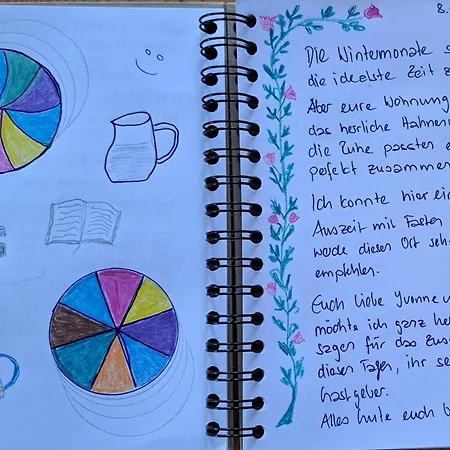 8.
Die Wintermonate s
die idealste Zeit z
Aber eure Wohnung
das herrliche
die Ruhe passten e
pefekt zusammen
Ich konnte hier ein
Auszeit mit Fasten
werde diesen Ort seh
empfehlen.
Euch liebe Yvonne u
möchte ich ganz he
sagen für das
diesen Tagen, ihr se
Gastgeber.
Alles Gute euch b